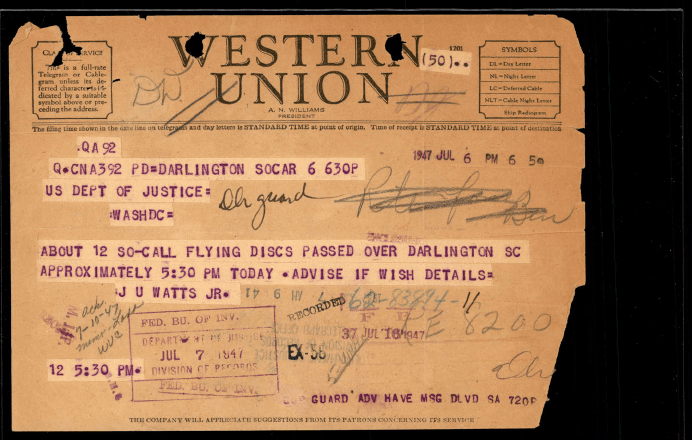 CLASS OF SERVICE
This is a full-rate
Telegram or Cable-
gram unless its de-
ferred character is in-
dicated by a suitable
symbol above or pre-
ceding the address.
WESTERN
UNION
1201
(50)..
A. N. WILLIAMS
PRESIDENT
SYMBOLS
DL=Day Letter
NL=Night Letter
LC=Deferred Cable
NLT=Cable Night Letter
Ship Radiogram
The filing time shown in the date line on telegrams and day letters is STANDARD TIME at point of origin. Time of receipt is STANDARD TIME at point of destination
.QA92
Q.CNA392 PD=DARLINGTON SOCAR 6 630P
1947 JUL 6 PM 6 50
US DEPT OF JUSTICE=
:WASHDC=
Dlr guard
ABOUT 12 SO-CALL FLYING DISCS PASSED OVER DARLINGTON SC
APPROXIMATELY 5:30 PM TODAY .ADVISE IF WISH DETAILS=
:J U WATTS JR.
62-83894-11
RECORDED
ack.
7-10-47
WVC
FED. BU. OF INV.
DEPARTMENT OF JUSTICE
JUL 7 1947
DIVISION OF RECORDS
FED. BU. OF INV.
F B I
37 JUL 16 1947
EX-56
12 5:30 PM.
GUARD ADV HAVE MSG DLVD SA 720P
THE COMPANY WILL APPRECIATE SUGGESTIONS FROM ITS PATRONS CONCERNING ITS SERVICE